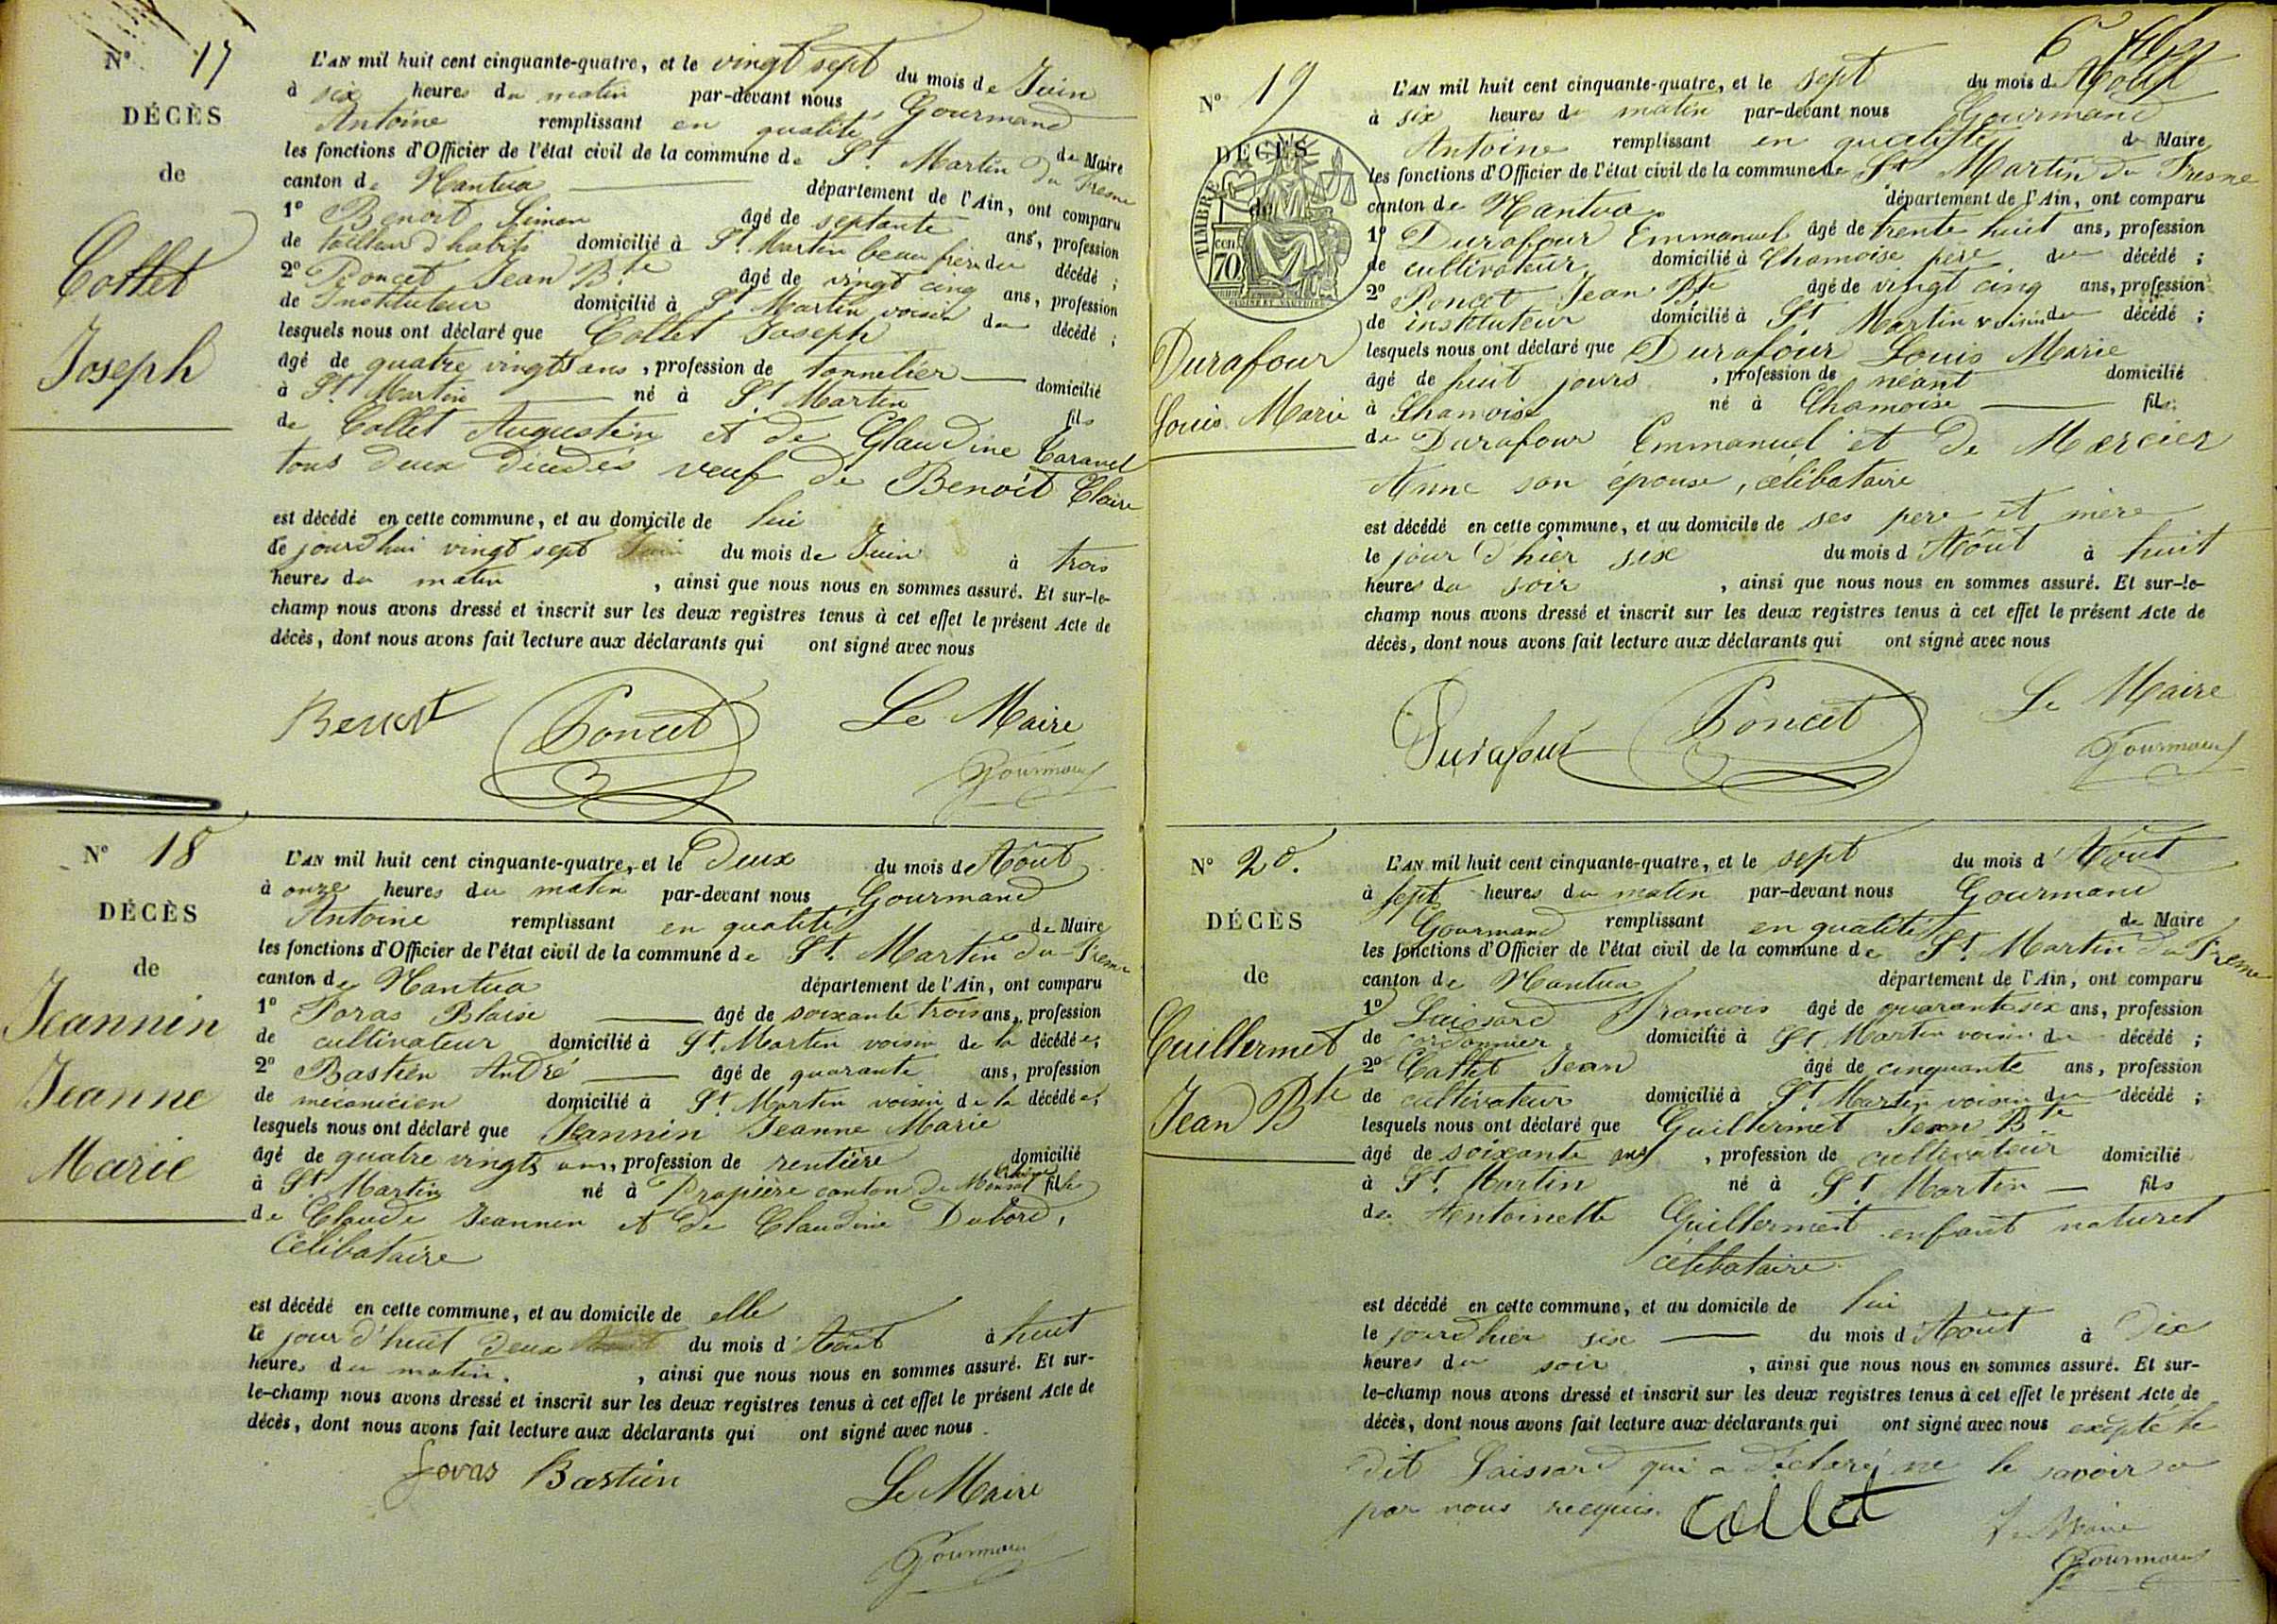 N° 17
DÉCÈS
de
Collet
Joseph
L'AN mil huit cent cinquante-quatre, et le vingt sept du mois de Juin
à six heures du matin par-devant nous Gourmand
Antoine remplissant en qualité de Maire
les fonctions d'Officier de l'état civil de la commune de St. Martin du Fresne
canton de Nantua département de l'Ain, ont comparu
1° Benoit Simon âgé de septante ans, profession
de tailleur d'habits domicilié à St. Martin beau frère du décédé ;
2° Poncet Jean Bte âgé de vingt cinq ans, profession
de Instituteur domicilié à St Martin voisin du décédé ;
lesquels nous ont déclaré que Collet Joseph
âgé de quatre vingts ans, profession de tonnelier domicilié
à St. Martin né à St. Martin fils
de Collet Augustin et de Claudine Caravel
tous deux décédés veuf de Benoît Claire
est décédé en cette commune, et au domicile de lui
le jourd'hui vingt sept du mois de Juin à trois
heures du matin, ainsi que nous nous en sommes assuré. Et sur-le-
champ nous avons dressé et inscrit sur les deux registres tenus à cet effet le présent Acte de
décès, dont nous avons fait lecture aux déclarants qui ont signé avec nous
Benoit Poncet Le Maire
Gourmand
N° 18
DÉCÈS
de
Jeannin
Jeanne
Marie
L'AN mil huit cent cinquante-quatre, et le Deux du mois d'Août
à onze heures du matin par-devant nous Gourmand
Antoine remplissant en qualité de Maire
les fonctions d'Officier de l'état civil de la commune de St. Martin du Fresne
canton de Nantua département de l'Ain, ont comparu
1° Foras Blaise âgé de soixante trois ans, profession
de cultivateur domicilié à St. Martin voisin de la décédée ;
2° Bastien André âgé de quarante ans, profession
de mecanicien domicilié à St. Martin voisin de la décédée ;
lesquels nous ont déclaré que Jeannin Jeanne Marie
âgé de quatre vingts ans, profession de rentière domicilié
à St. Martin né à Propière canton de fille
de Claude Jeannin et de Claudine Dubord,
Célibataire
est décédé en cette commune, et au domicile de elle
le jour d'huit Deux du mois d'Août à huit
heures du matin. , ainsi que nous nous en sommes assuré. Et sur-
le-champ nous avons dressé et inscrit sur les deux registres tenus à cet effet le présent Acte de
décès, dont nous avons fait lecture aux déclarants qui ont signé avec nous
Foras Bastien Le Maire
Gourmand
N° 19
DÉCÈS
de
TIMBRE
cen
70
Durafour
Louis Marie
L'AN mil huit cent cinquante-quatre, et le sept du mois d'Août
à six heures du matin par-devant nous Gourmand
Antoine remplissant en qualité de Maire
les fonctions d'Officier de l'état civil de la commune de St Martin du Fresne
canton de Nantua département de l'Ain, ont comparu
1° Durafour Emmanuel âgé de trente huit ans, profession
de cultivateur domicilié à Chamoise père du décédé ;
2° Poncet Jean Bte âgé de vingt cinq ans, profession
de instituteur domicilié à St Martin voisin du décédé ;
lesquels nous ont déclaré que Durafour Louis Marie
âgé de huit jours, profession de néant domicilié
à Chamoise né à Chamoise fils
de Durafour Emmanuel et de Mercier
Anne son épouse, célibataire
est décédé en cette commune, et au domicile de ses pere et mère
le jour d'hier six du mois d'Août à huit
heures du soir, ainsi que nous nous en sommes assuré. Et sur-le-
champ nous avons dressé et inscrit sur les deux registres tenus à cet effet le présent Acte de
décès, dont nous avons fait lecture aux déclarants qui ont signé avec nous
Durafour Poncet Le Maire
Gourmand
N° 20.
DÉCÈS
de
Guillermet
Jean Bte
L'AN mil huit cent cinquante-quatre, et le sept du mois d'Août
à sept heures du matin par-devant nous Gourmand
Gourmand remplissant en qualité de Maire
les fonctions d'Officier de l'état civil de la commune de St. Martin du Fresne
canton de Nantua département de l'Ain, ont comparu
1° Laissard François âgé de quarante six ans, profession
de cordonnier domicilié à St Martin voisin du décédé ;
2° Collet Jean âgé de cinquante ans, profession
de cultivateur domicilié à St. Martin voisin du décédé ;
lesquels nous ont déclaré que Guillermet Jean Bte
âgé de soixante ans, profession de cultivateur domicilié
à St. Martin né à St. Martin fils
de Antoinette Guillermet enfant naturel
célibataire
est décédé en cette commune, et au domicile de lui
le jourd'hier six du mois d'Août à dix
heures du soir, ainsi que nous nous en sommes assuré. Et sur-
le-champ nous avons dressé et inscrit sur les deux registres tenus à cet effet le présent Acte de
décès, dont nous avons fait lecture aux déclarants qui ont signé avec nous excepté le
dit Laissard qui a déclaré ne le savoir a
par nous recquis. Collet Le Maire
Gourmand